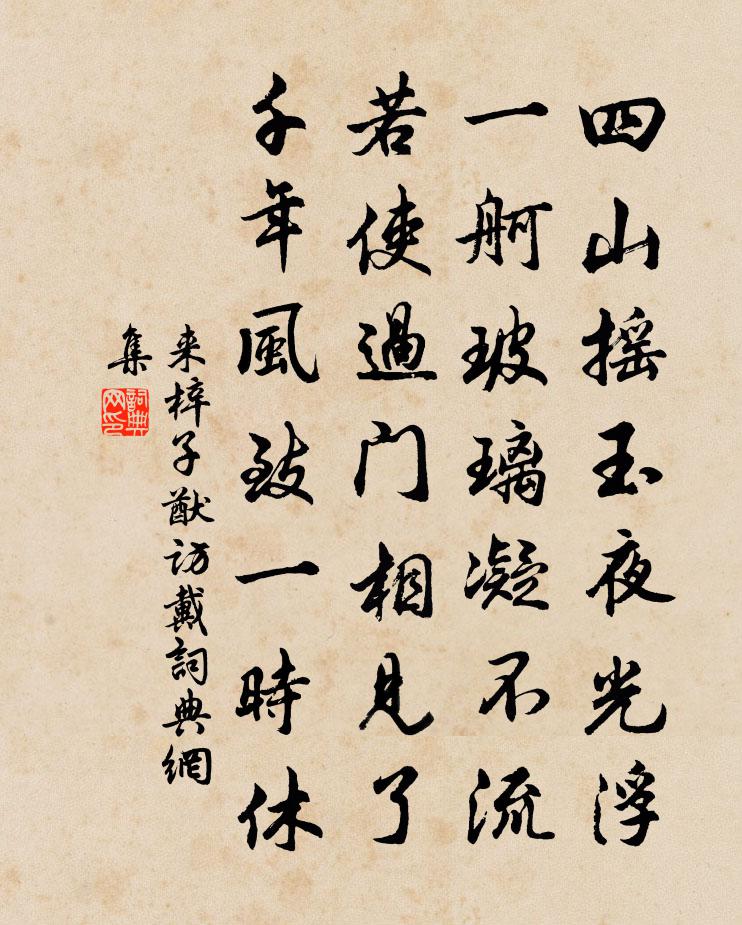 四山摇玉夜光浮
一舸玻璃凝不流
若使過门相見了
千年風致一時休
来梓子猷访戴詞典網
集
詞典
网印